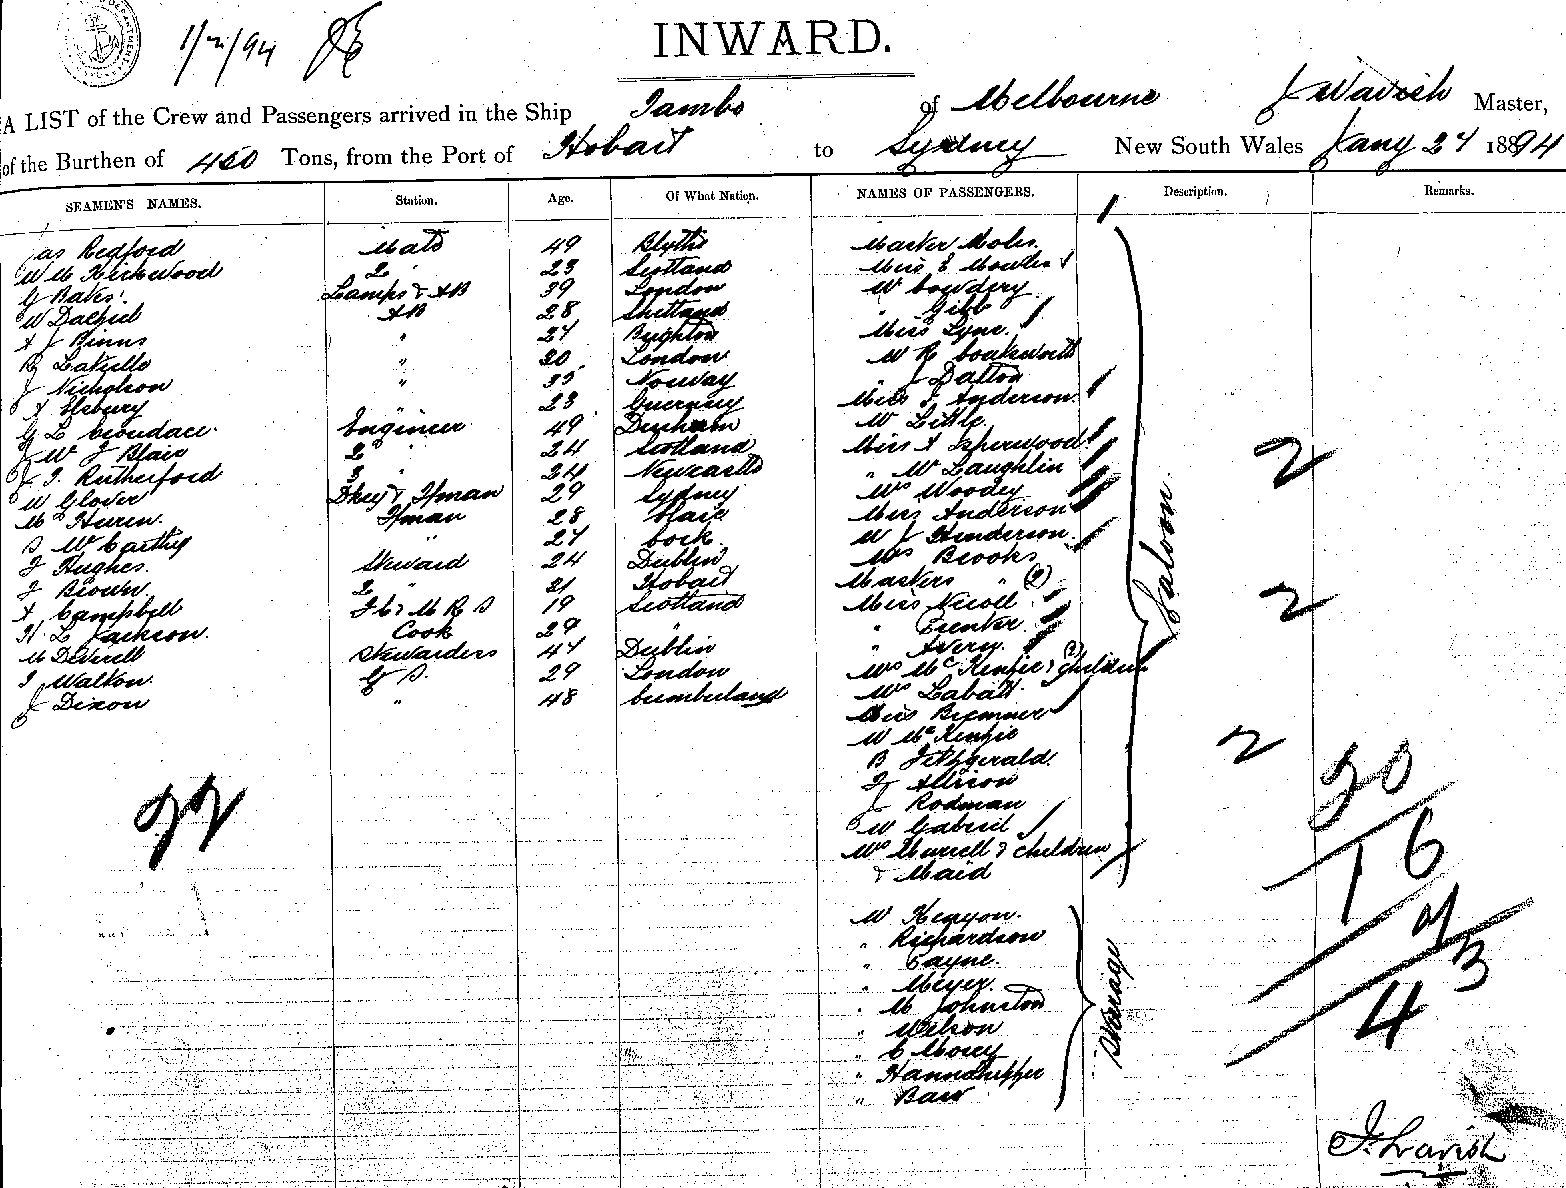 1/2/94
INWARD.
A LIST of the Crew and Passengers arrived in the Ship Tambo of Melbourne J Lavish Master,
of the Burthen of 450 Tons, from the Port of Hobart to Sydney New South Wales Jany 27 1894
SEAMEN'S NAMES. Station. Age. Of What Nation. NAMES OF PASSENGERS. Description. Remarks.
Jas Redford Mate 49 Blyth Master Moles
W M Kirkwood 2 " 23 Scotland Miss E Moules
G Bates Lamps & AB 39 London Mr Cowdery
W Dalziel AB 28 Shetland " Gibb
A J Binns " 27 Brighton Miss Lyne
" London Mr R
J Nicholson " Norway " J Dalton
A Elsbury " 23 Guernsey Miss J Anderson
G L Croudace Engineer 49 Durham Mr Little
J W J Blair 2 " 24 Scotland Miss A Isherwood
J T Rutherford 3 " 24 Newcastle " McLaughlin
W Glover Dkey & Fman 29 Sydney Mrs Woodey
Fman 28 Miss Anderson
D McCarthy " 27 Cork Mr J Henderson
J Hughes Steward 24 Dublin Mrs Brooks
J Brown 2 " 21 Hobart Masters " (2)
A Campbell 19 Scotland Miss Nicoll
H L Jackson Cook 29 "
M Deverell Stewardess 47 Dublin " Avery
T Walton G S 29 London Mrs McKenzie & children
J Dixon " 48 Cumberland Mrs Labatt
Miss Bremner
Mr McKenzie
B Fitzgerald
J Allison
J Rodman
W Gabriel
Mrs Murrell & children
& Maid
Saloon
2
2
2
22
30
16
43
Mr Kenyon
" Richardson
" Payne
" Meyer
" M Johnston
" Wilson
" C Morey
"
" Baw
Steerage
J Lavish